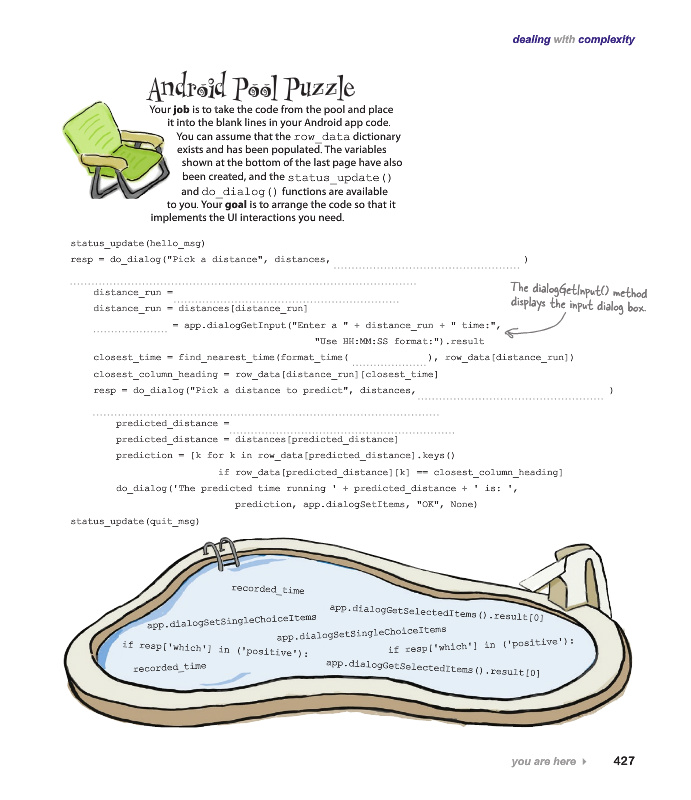 dealing with complexity
Android Pool Puzzle
Your job is to take the code from the pool and place
it into the blank lines in your Android app code.
You can assume that the row_data dictionary
exists and has been populated. The variables
shown at the bottom of the last page have also
been created, and the status_update()
and do_dialog() functions are available
to you. Your goal is to arrange the code so that it
implements the UI interactions you need.
status_update(hello_msg)
resp = do_dialog("Pick a distance", distances, )
distance_run =
distance_run = distances[distance_run]
= app.dialogGetInput("Enter a " + distance_run + " time:",
"Use HH:MM:SS format:").result
The dialogGetInput() method
displays the input dialog box.
closest_time = find_nearest_time(format_time( ), row_data[distance_run])
closest_column_heading = row_data[distance_run][closest_time]
resp = do_dialog("Pick a distance to predict", distances, )
predicted_distance =
predicted_distance = distances[predicted_distance]
prediction = [k for k in row_data[predicted_distance].keys()
if row_data[predicted_distance][k] == closest_column_heading]
do_dialog('The predicted time running ' + predicted_distance + ' is: ',
prediction, app.dialogSetItems, "OK", None)
status_update(quit_msg)
recorded_time
app.dialogGetSelectedItems().result[0]
app.dialogSetSingleChoiceItems
app.dialogSetSingleChoiceItems
if resp['which'] in ('positive'):
if resp['which'] in ('positive'):
recorded_time
app.dialogGetSelectedItems().result[0]
you are here 427